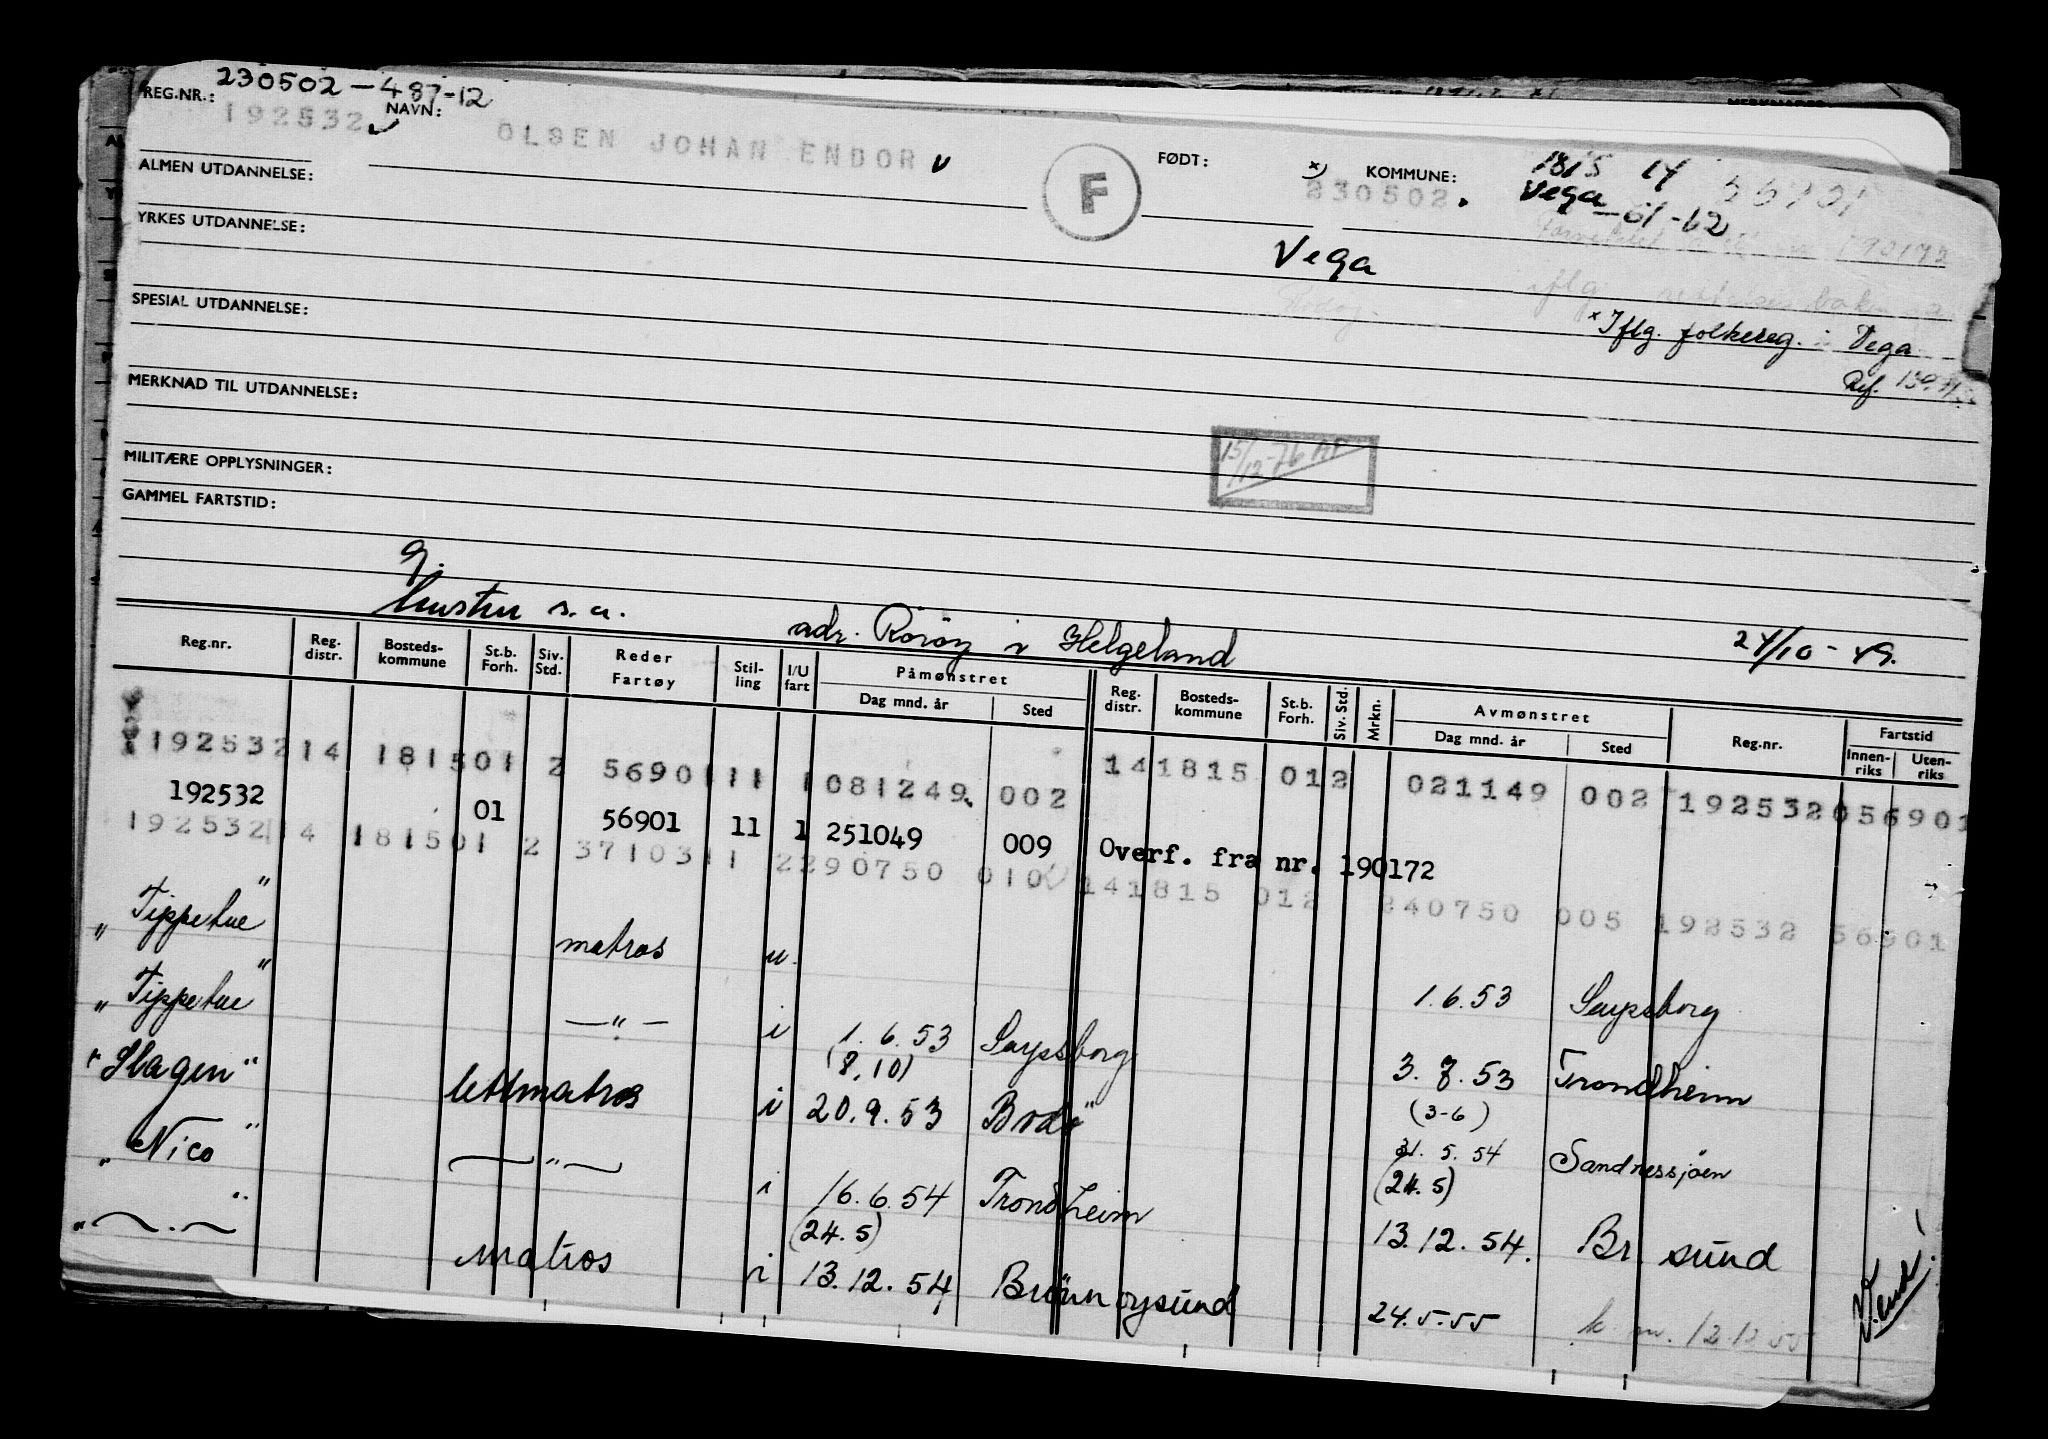 REG.NR.: 230502-487-12
192532
NAVN:
OLSEN JOHAN ENDOR
F
FØDT:
x)
230502.
KOMMUNE:
1815 14
Vega -61-62
56901
ALMEN UTDANNELSE:
YRKES UTDANNELSE:
Vega
190172
iflg.
SPESIAL UTDANNELSE:
x Iflg. folkereg. i Vega
Ref.
MERKNAD TIL UTDANNELSE:
15/12-76
MILITÆRE OPPLYSNINGER:
GAMMEL FARTSTID:
g.
hustru s.a. adr. Rørøy i Helgeland 24/10-49.
Reg.nr. Reg. distr. Bosteds- kommune St.b. Forh. Siv. Std. Reder Fartøy Stil- ling I/U fart Påmønstret Dag mnd. år Sted Reg. distr. Bosteds- kommune St.b. Forh. Siv. Std. Mrkn. Avmønstret Dag mnd. år Sted Reg.nr. Fartstid Innen- riks Uten- riks
192532 14 1815 01 2 56901 11 1 081249 002 14 1815 01 2 021149 002 192532 056901
192532 01 56901 11 1 251049 009 Overf. fra nr. 190172
192532 14 1815 01 2 37103 11 2 290750 010 14 1815 012 240750 005 192532 56901
"Tippetue" matros u. 1.6.53 Sarpsborg
"Tippetue" —"— i 1.6.53 Sarpsborg 3.7.53 Trondheim
(8.10) (3-6)
"Hagen" lettmatros i 20.9.53 Bodø 31.5.54 Sandnessjøen
(24.5)
"Nico" —"— i 16.6.54 Trondheim 13.12.54. Br. sund
(24.5)
"—.— matros i 13.12.54 Brønnøysund 24.5.55 k. m. 12.12.55